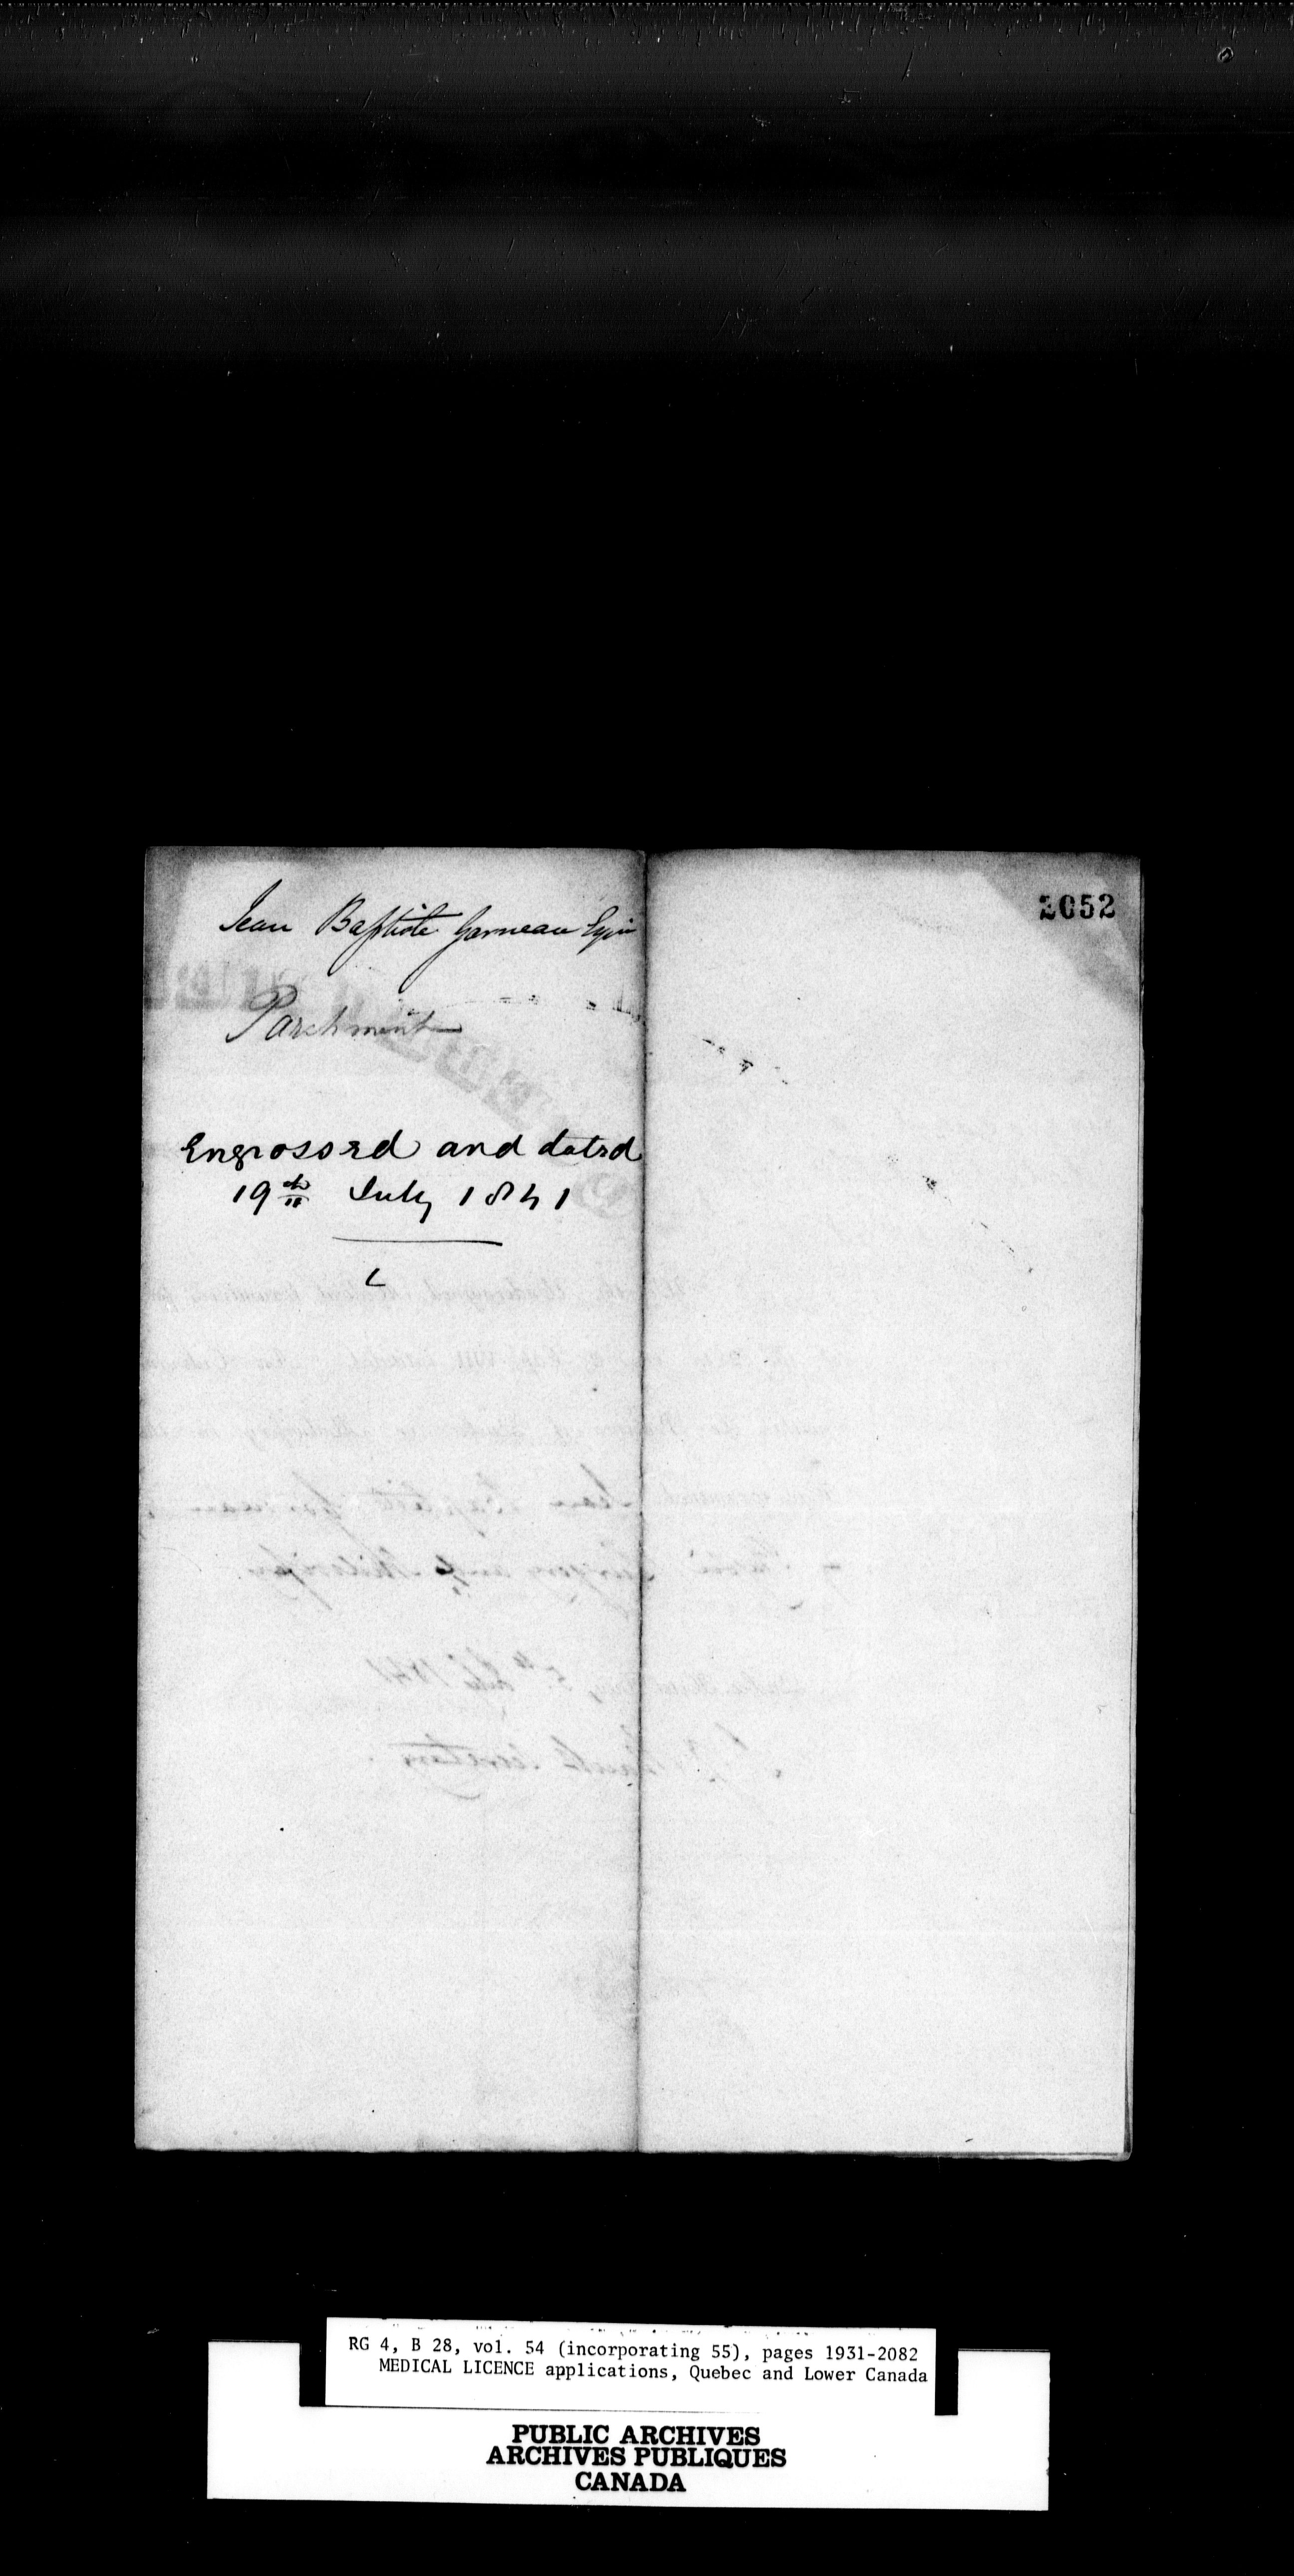 2052
Jean Baptiste Garneau Esqr
Parchment
Engrossed and dated
19th July 1841
L
RG 4, B 28, vol. 54 (incorporating 55), pages 1931-2082
MEDICAL LICENCE applications, Quebec and Lower Canada
PUBLIC ARCHIVES
ARCHIVES PUBLIQUES
CANADA